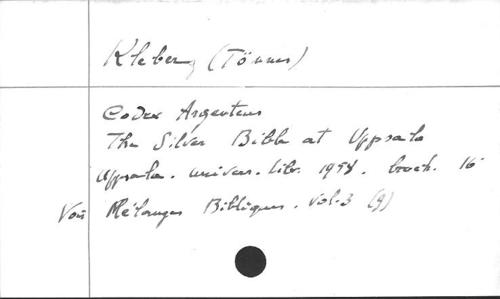 Kleberg (Tönnes)
Codex Argenteus
The Silver Bible at Uppsala
Uppsala. univers. libr. 1954. broch. 16
Voir Mélanges Bibliques. vol. 3 (9)